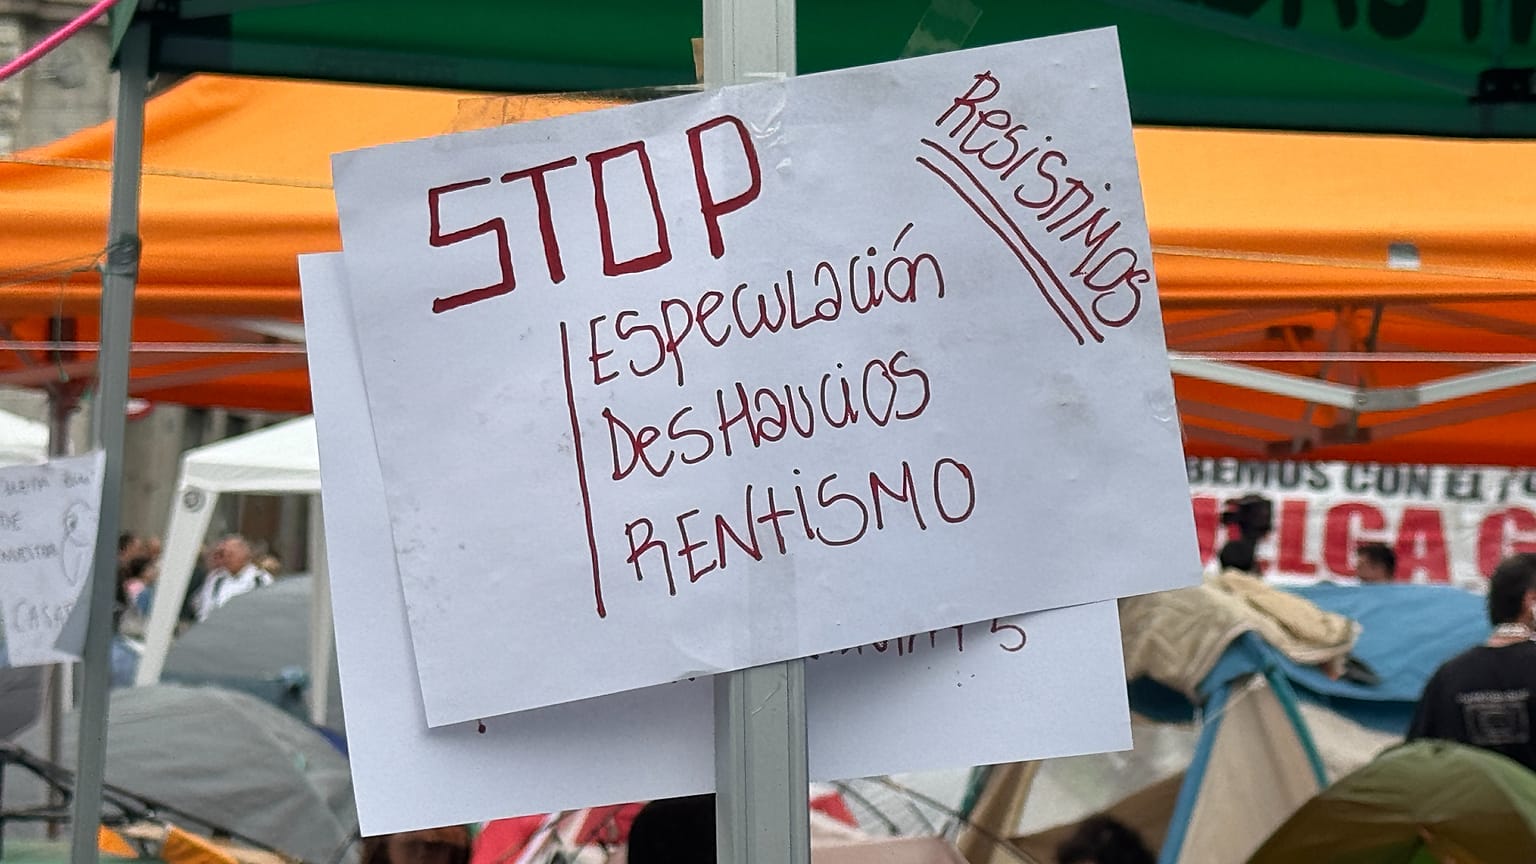 STOP
ESPECULACIÓN
DESHAUCIOS
RENTISMO
RESISTIMOS
BEMOS CON EL
ELGA G
DE
CASAS